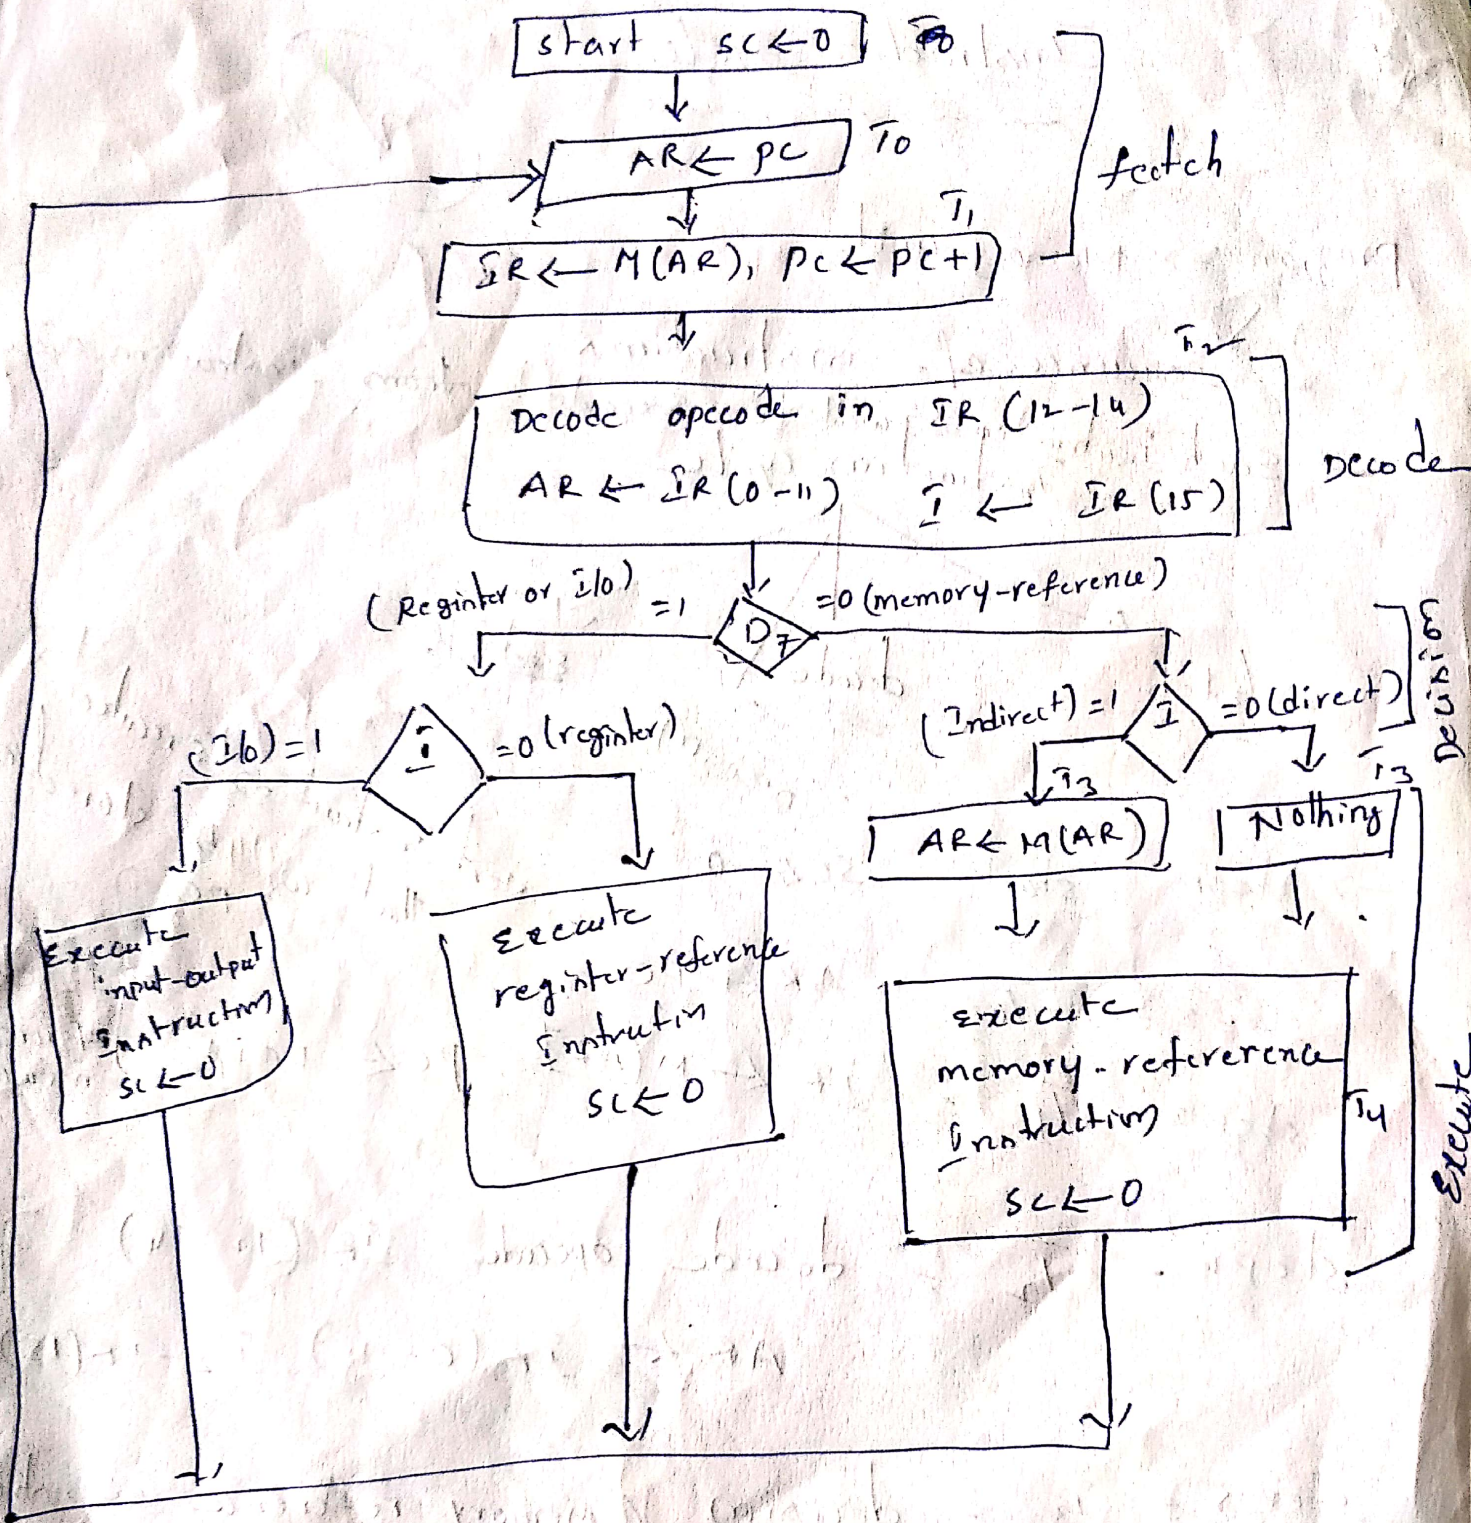 start SC ← 0
AR ← PC T0
feetch
T1
IR ← M(AR), PC ← PC+1
T2
Decode opecode in IR (12-14)
AR ← IR (0-11) I ← IR (15)
Decode
(Register or I/o) =1 D7 =0 (memory-reference)
Decision
(I/o) =1 I =0 (register)
(Indirect) =1 I =0 (direct)
T3 T3
AR ← M(AR) Nothing
Execute
input-output
Instruction
SC ← 0
Execute
register-reference
Instrutin
SC ← 0
Execute
memory-refererence
Instruction
SC ← 0
T4
Execute